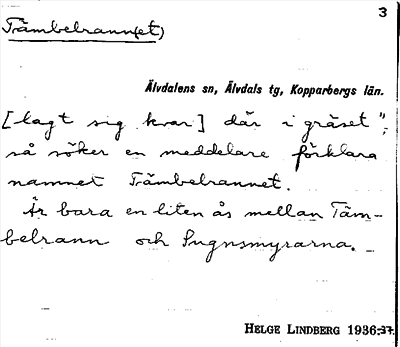 3
Tämbelrann(et)
Älvdalens sn, Älvdals tg, Kopparbergs län.
[lagt sig kvar] där i gräset",
så söker en meddelare förklara
namnet Tämbelrannet.
Är bara en liten ås mellan Täm-
belrann och Sugnsmyrarna. -
HELGE LINDBERG 1936-37.